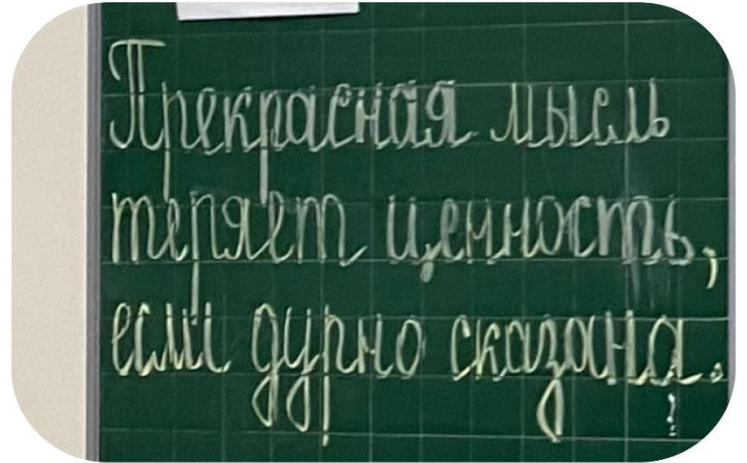 Прекрасная мысль
теряет ценность,
если дурно сказана.